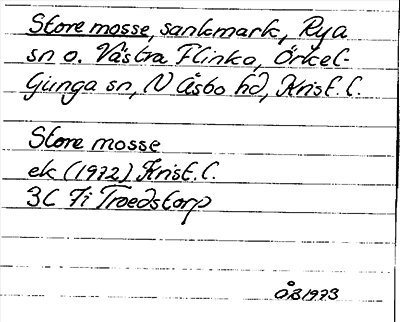 Store mosse, sankmark, Rya
sn o. Västra Flinka, Örkel-
ljunga sn, N Åsbo hd, Krist. l.
Store mosse
ek (1972) Krist. l.
3C 7i Troedstorp
ÅB1973